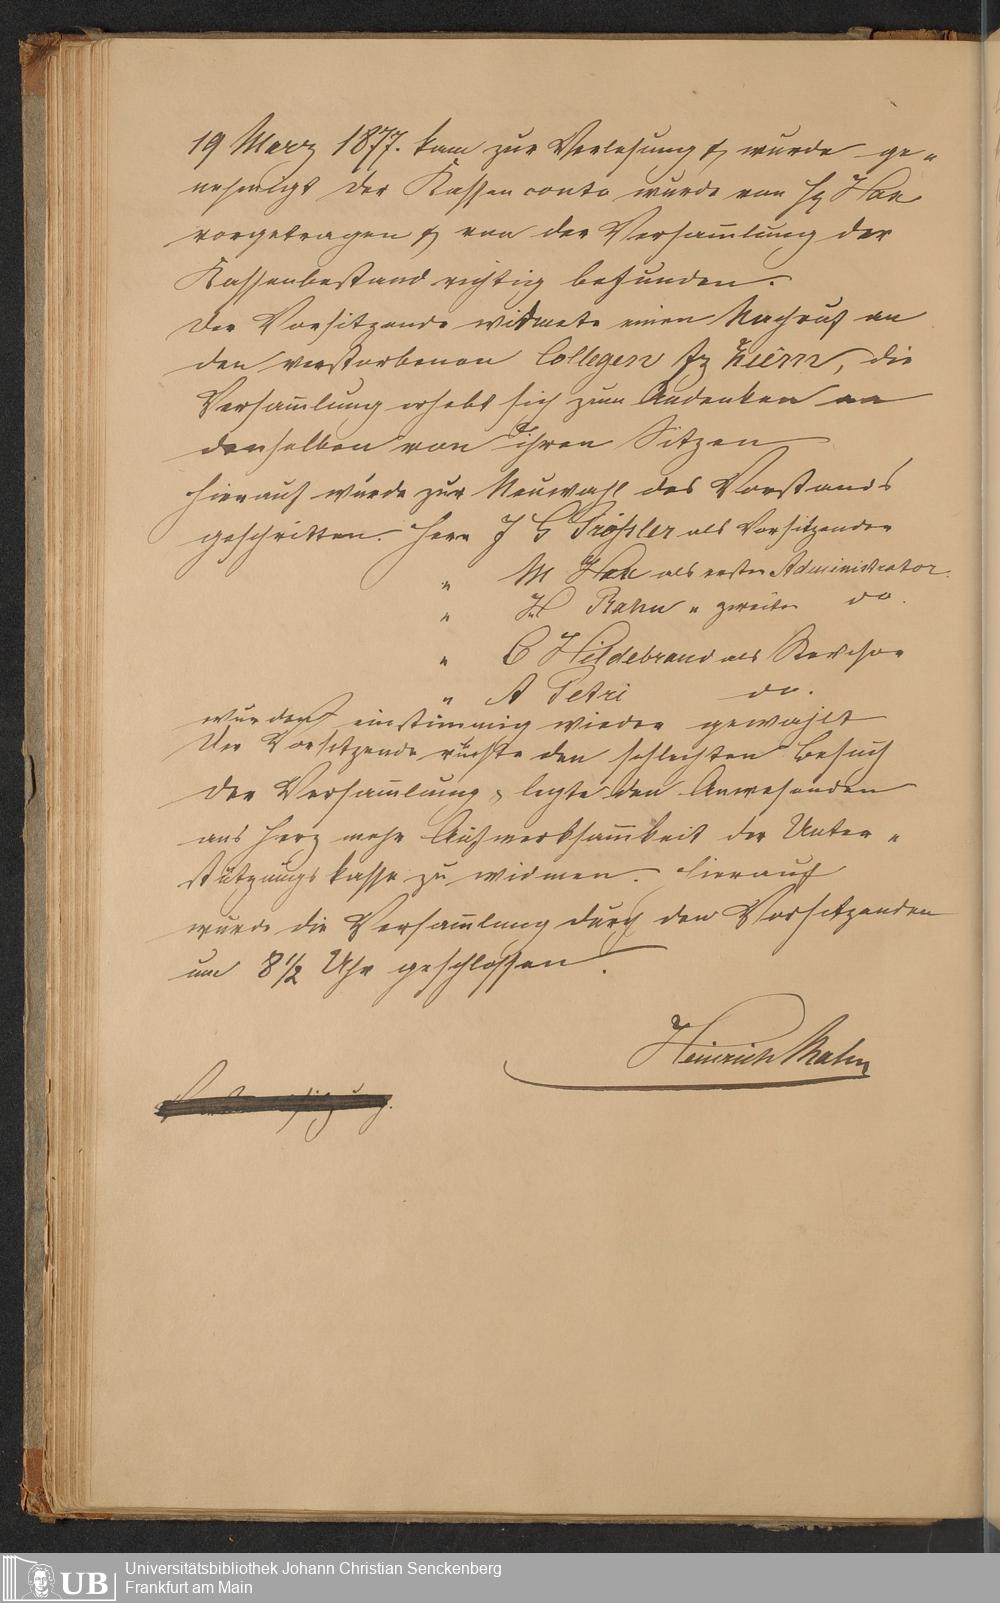 19 März 1877. kam zur Verlesung & wurde ge-
nehmigt der Kassenconto wurde von H Hak
vorgetragen & von der Versam̄lung der
Kassenbestand richtig befunden.
Der Vorsitzende widmete einen Nachruf an
den verstorbenen Collegen, die
Versam̄lung erhebt sich zum Andenken an
denselben von ihren Sitzen
Hierauf wurde zur Neuwahl des Vorstands
geschritten. Herr J G Prößler als Vorsitzender
" M Hak als erster Administrator.
" H Rahn " zweiter do.
" C Hildebrand als Revisor
" A Petri do.
wurden einstimmig wieder gewählt
Der Vorsitzende rügte den schlechten Besuch
der Versam̄lung & legte den Anwesenden
ans Herz mehr Aufmerksam̄keit der Unter-
stützungskasse zu widmen. Hierauf
wurde die Versam̄lung durch den Vorsitzenden
um 8 1/2 Uhr geschlossen.
Heinrich Rahn
UB
Universitätsbibliothek Johann Christian Senckenberg
Frankfurt am Main